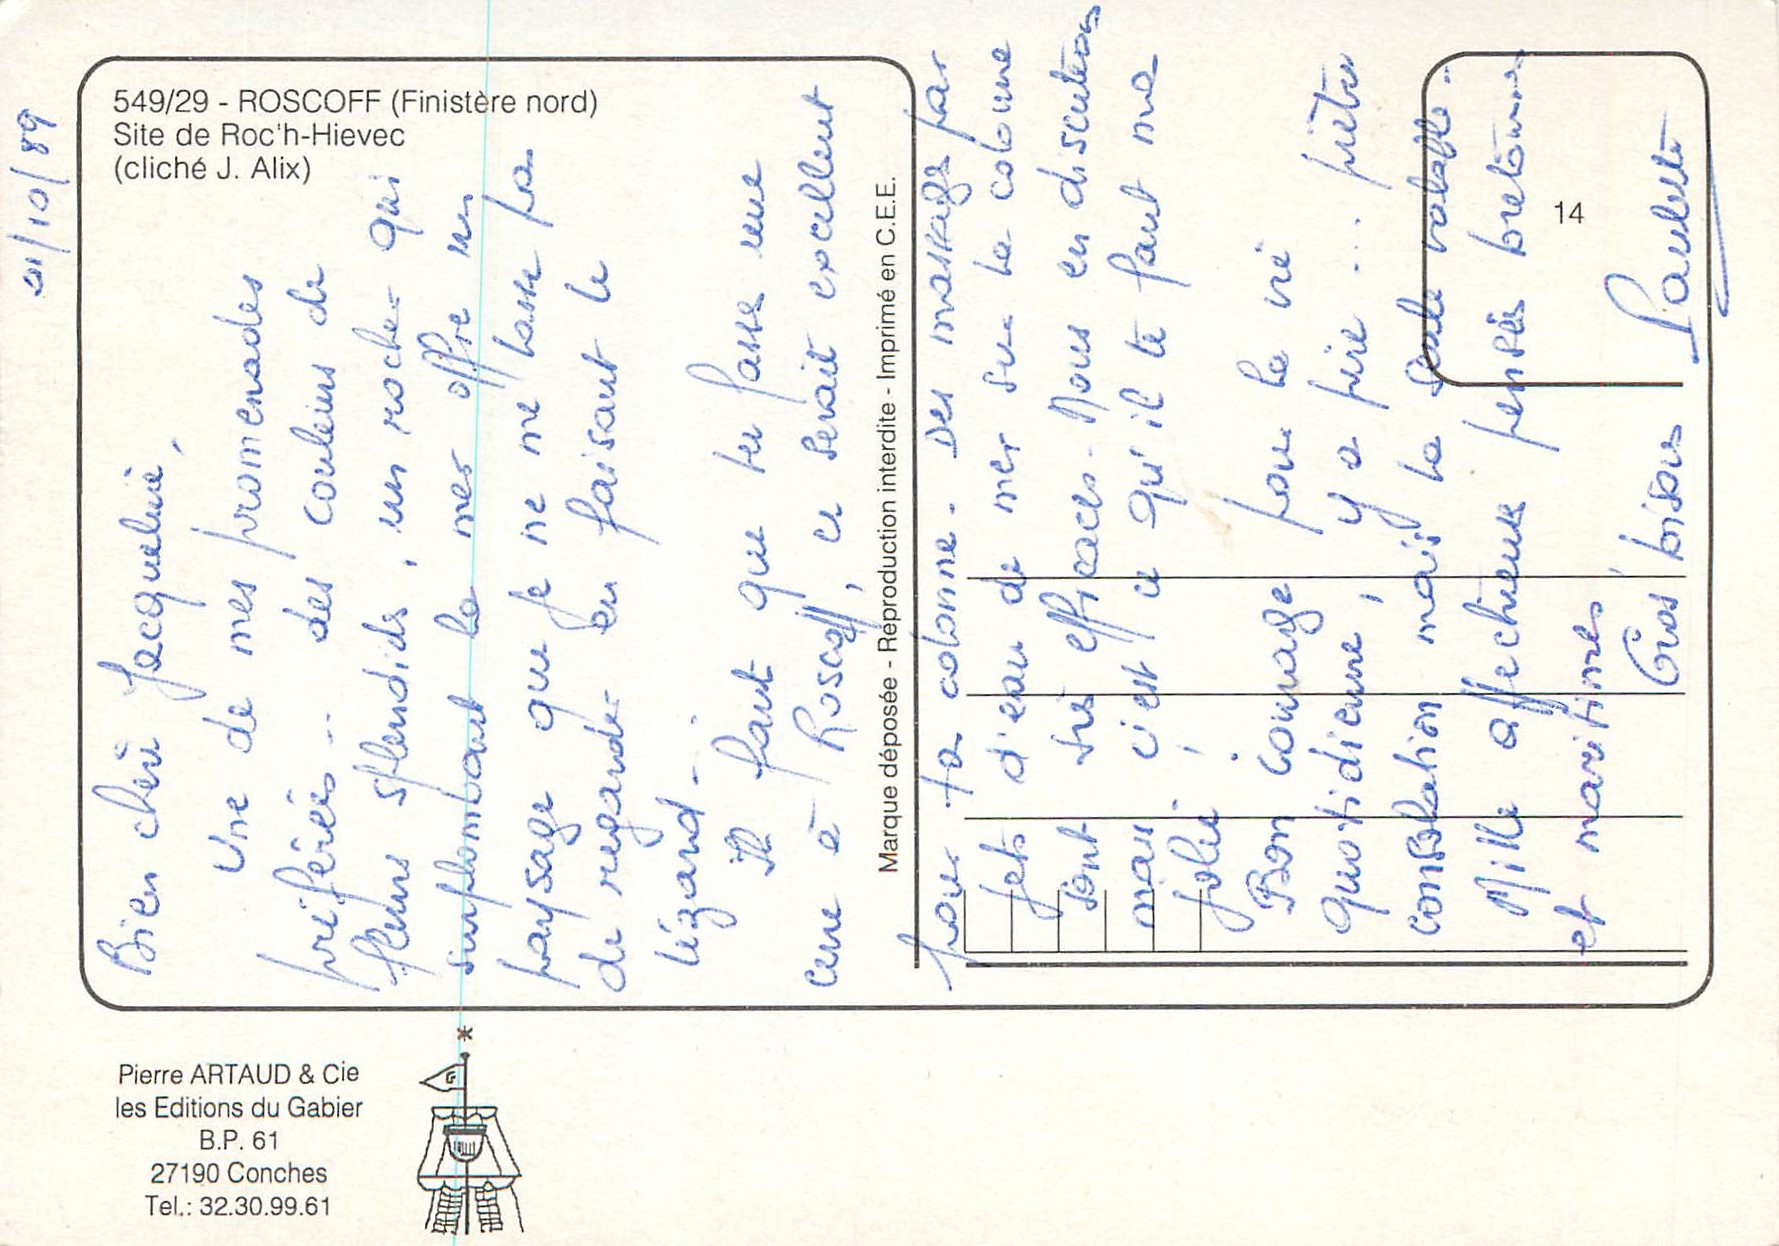 549/29 - ROSCOFF (Finistère nord)
Site de Roc'h-Hievec
(cliché J. Alix)
21/10/89
Bien chère Jacqueline,
Une de mes promenades
préférées.. des couleurs de
fleurs splendides, un rocher qui
surplombant la mer offre un
paysage que je ne me lasse pas
de regarder en faisant le
lézard.
Il faut que tu fasses une
cure à Roscoff, ce serait excellent
pour ta colonne. Des massages par
jets d'eau de mer sur la colonne
sont très efficaces. Nous en discuterons
mais c'est ce qu'il te faut ma
jolie !
Bon courage pour la vie
quotidienne, y a pire ... piètre
consolation mais la seule valable.
Mille affectueuses pensées bretonnes
et maritimes
Gros bisous
Paulette
Marque déposée - Reproduction interdite - Imprimé en C.E.E.
14
Pierre ARTAUD & Cie
les Editions du Gabier
B.P. 61
27190 Conches
Tel.: 32.30.99.61